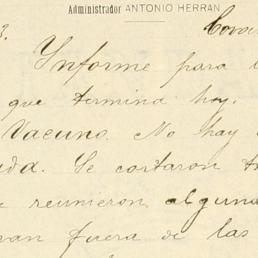 Administrador ANTONIO HERRAN
3.
Informe para
que termina hoy.
Vacuno. No hay
Se cortaron
reunieron alguna
van fuera de las